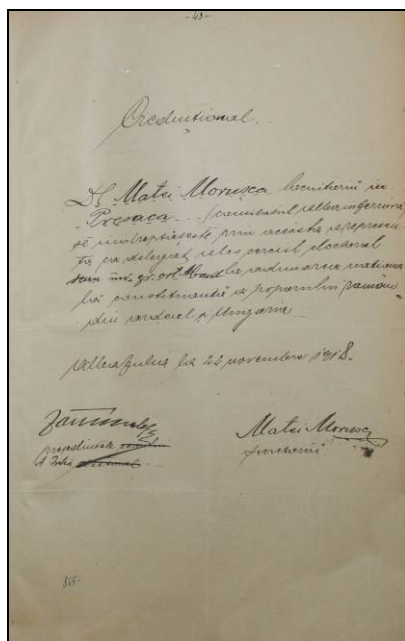 - 43 -
Credentional.
Dl Matei Morușca locuitoriu în
Presaca comitatul Alba inferioară
se îndreptățește prin aceasta a represen-
ta ca delegat ales cercul electoral
la adunarea națio-
lă constituantă a poporului român
din Ardeal și Ungaria
Alba Iulia la 21 novembre 1918.
președintele
Matei Morușca
868-